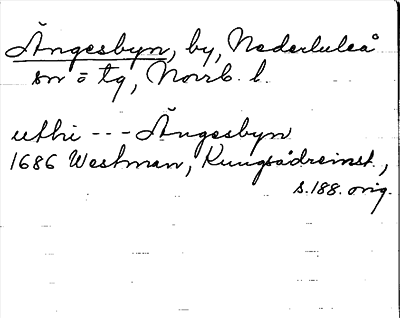 Ängesbyn, by, Nederluleå
sn o tg, Norrb. l.
uthi --- Ängesbyn
1686 Westman, Kungsådreinst.,
s.188. orig.